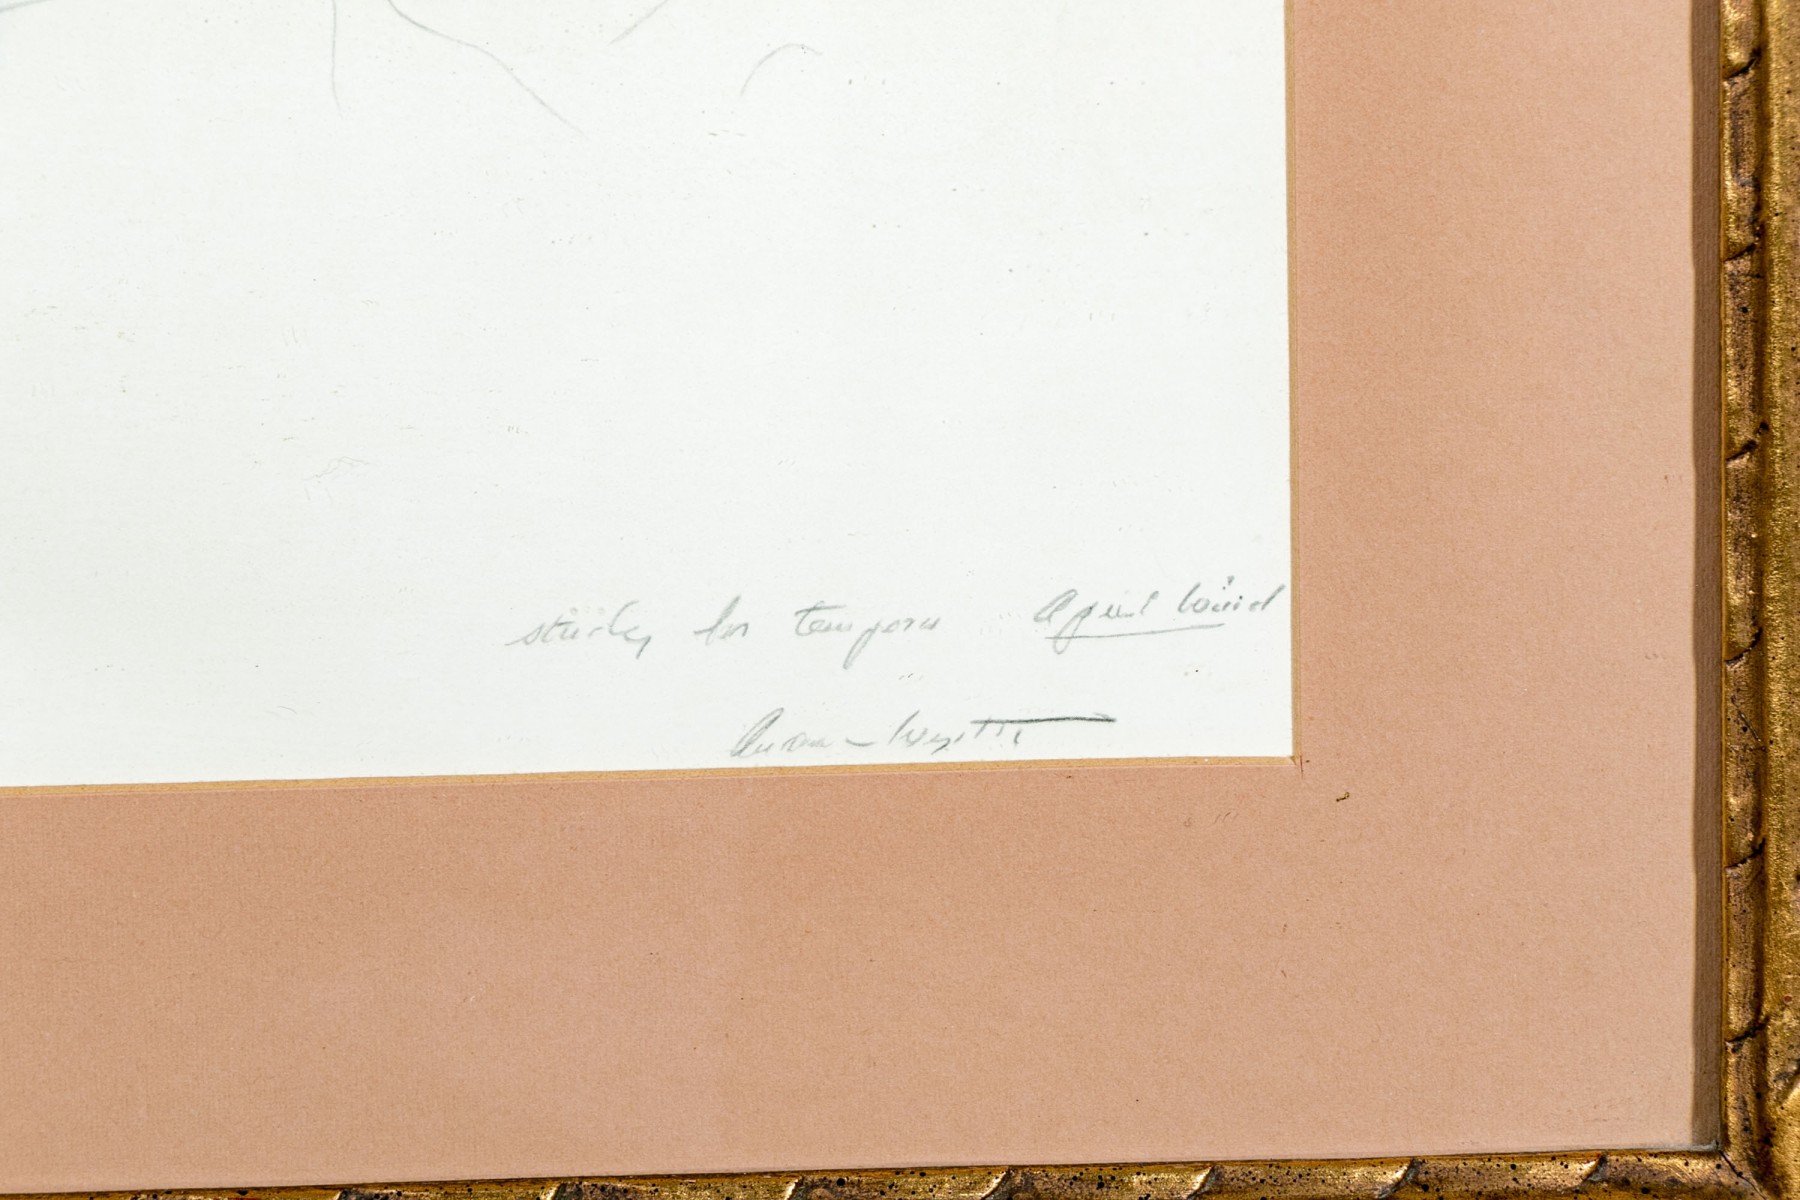 study for tempera April Wind
Andrew Wyeth